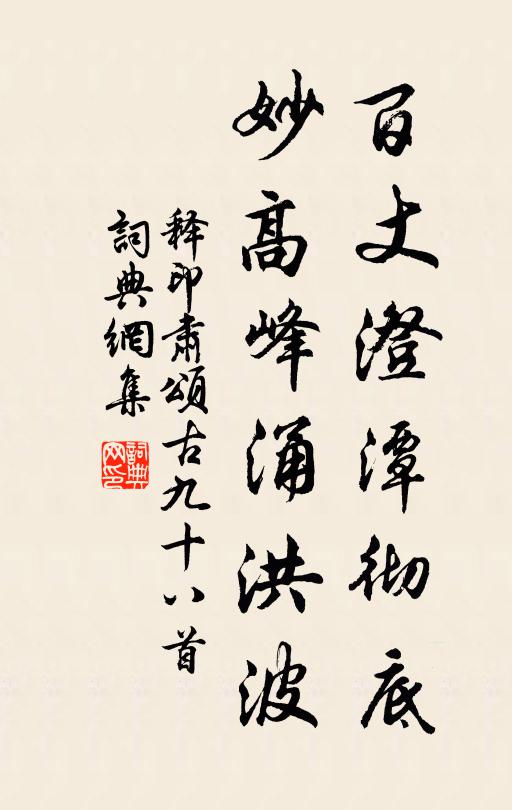 百丈澄潭彻底
妙高峰涌洪波
释印肃颂古九十八首
词典網集
詞典网印